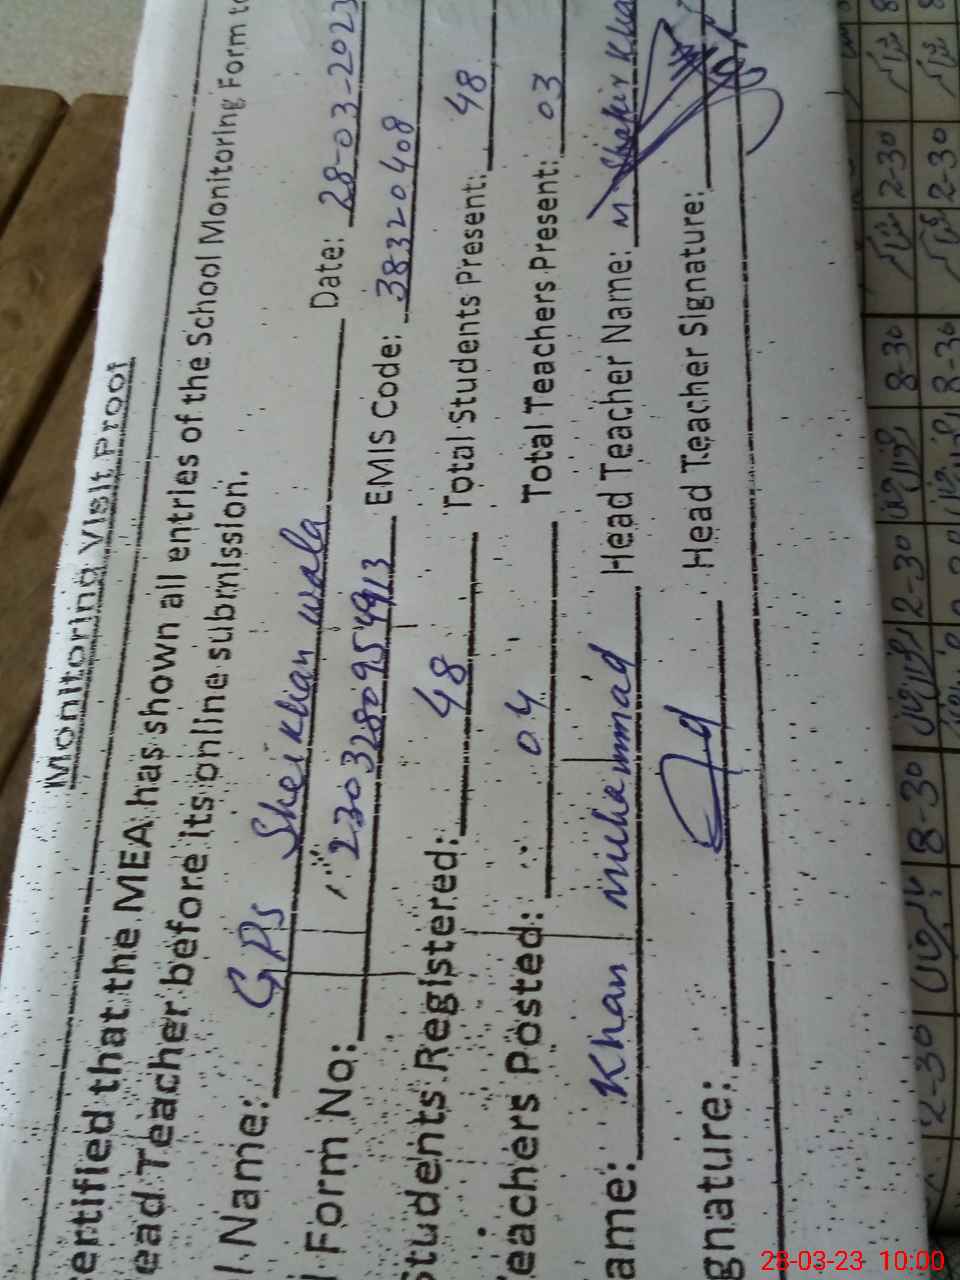 Monitoring Visit Proof
entified that the MEA has shown all entries of the School Monitoring Form to
ead Teacher before its online submission.
l Name: GPS Sheikhan wala Date: 28-03-2023
l Form No: 2303280954913 EMIS Code: 38320408
Students Registered: 48 Total Students Present: 48
Teachers Posted: 04 Total Teachers Present: 03
ame: Khan muhammad Head Teacher Name: M Shakir Kha
gnature: Head Teacher Signature:
2-30 8-30 2-30 8-30 2-30
8-30 2-30
28-03-23 10:00